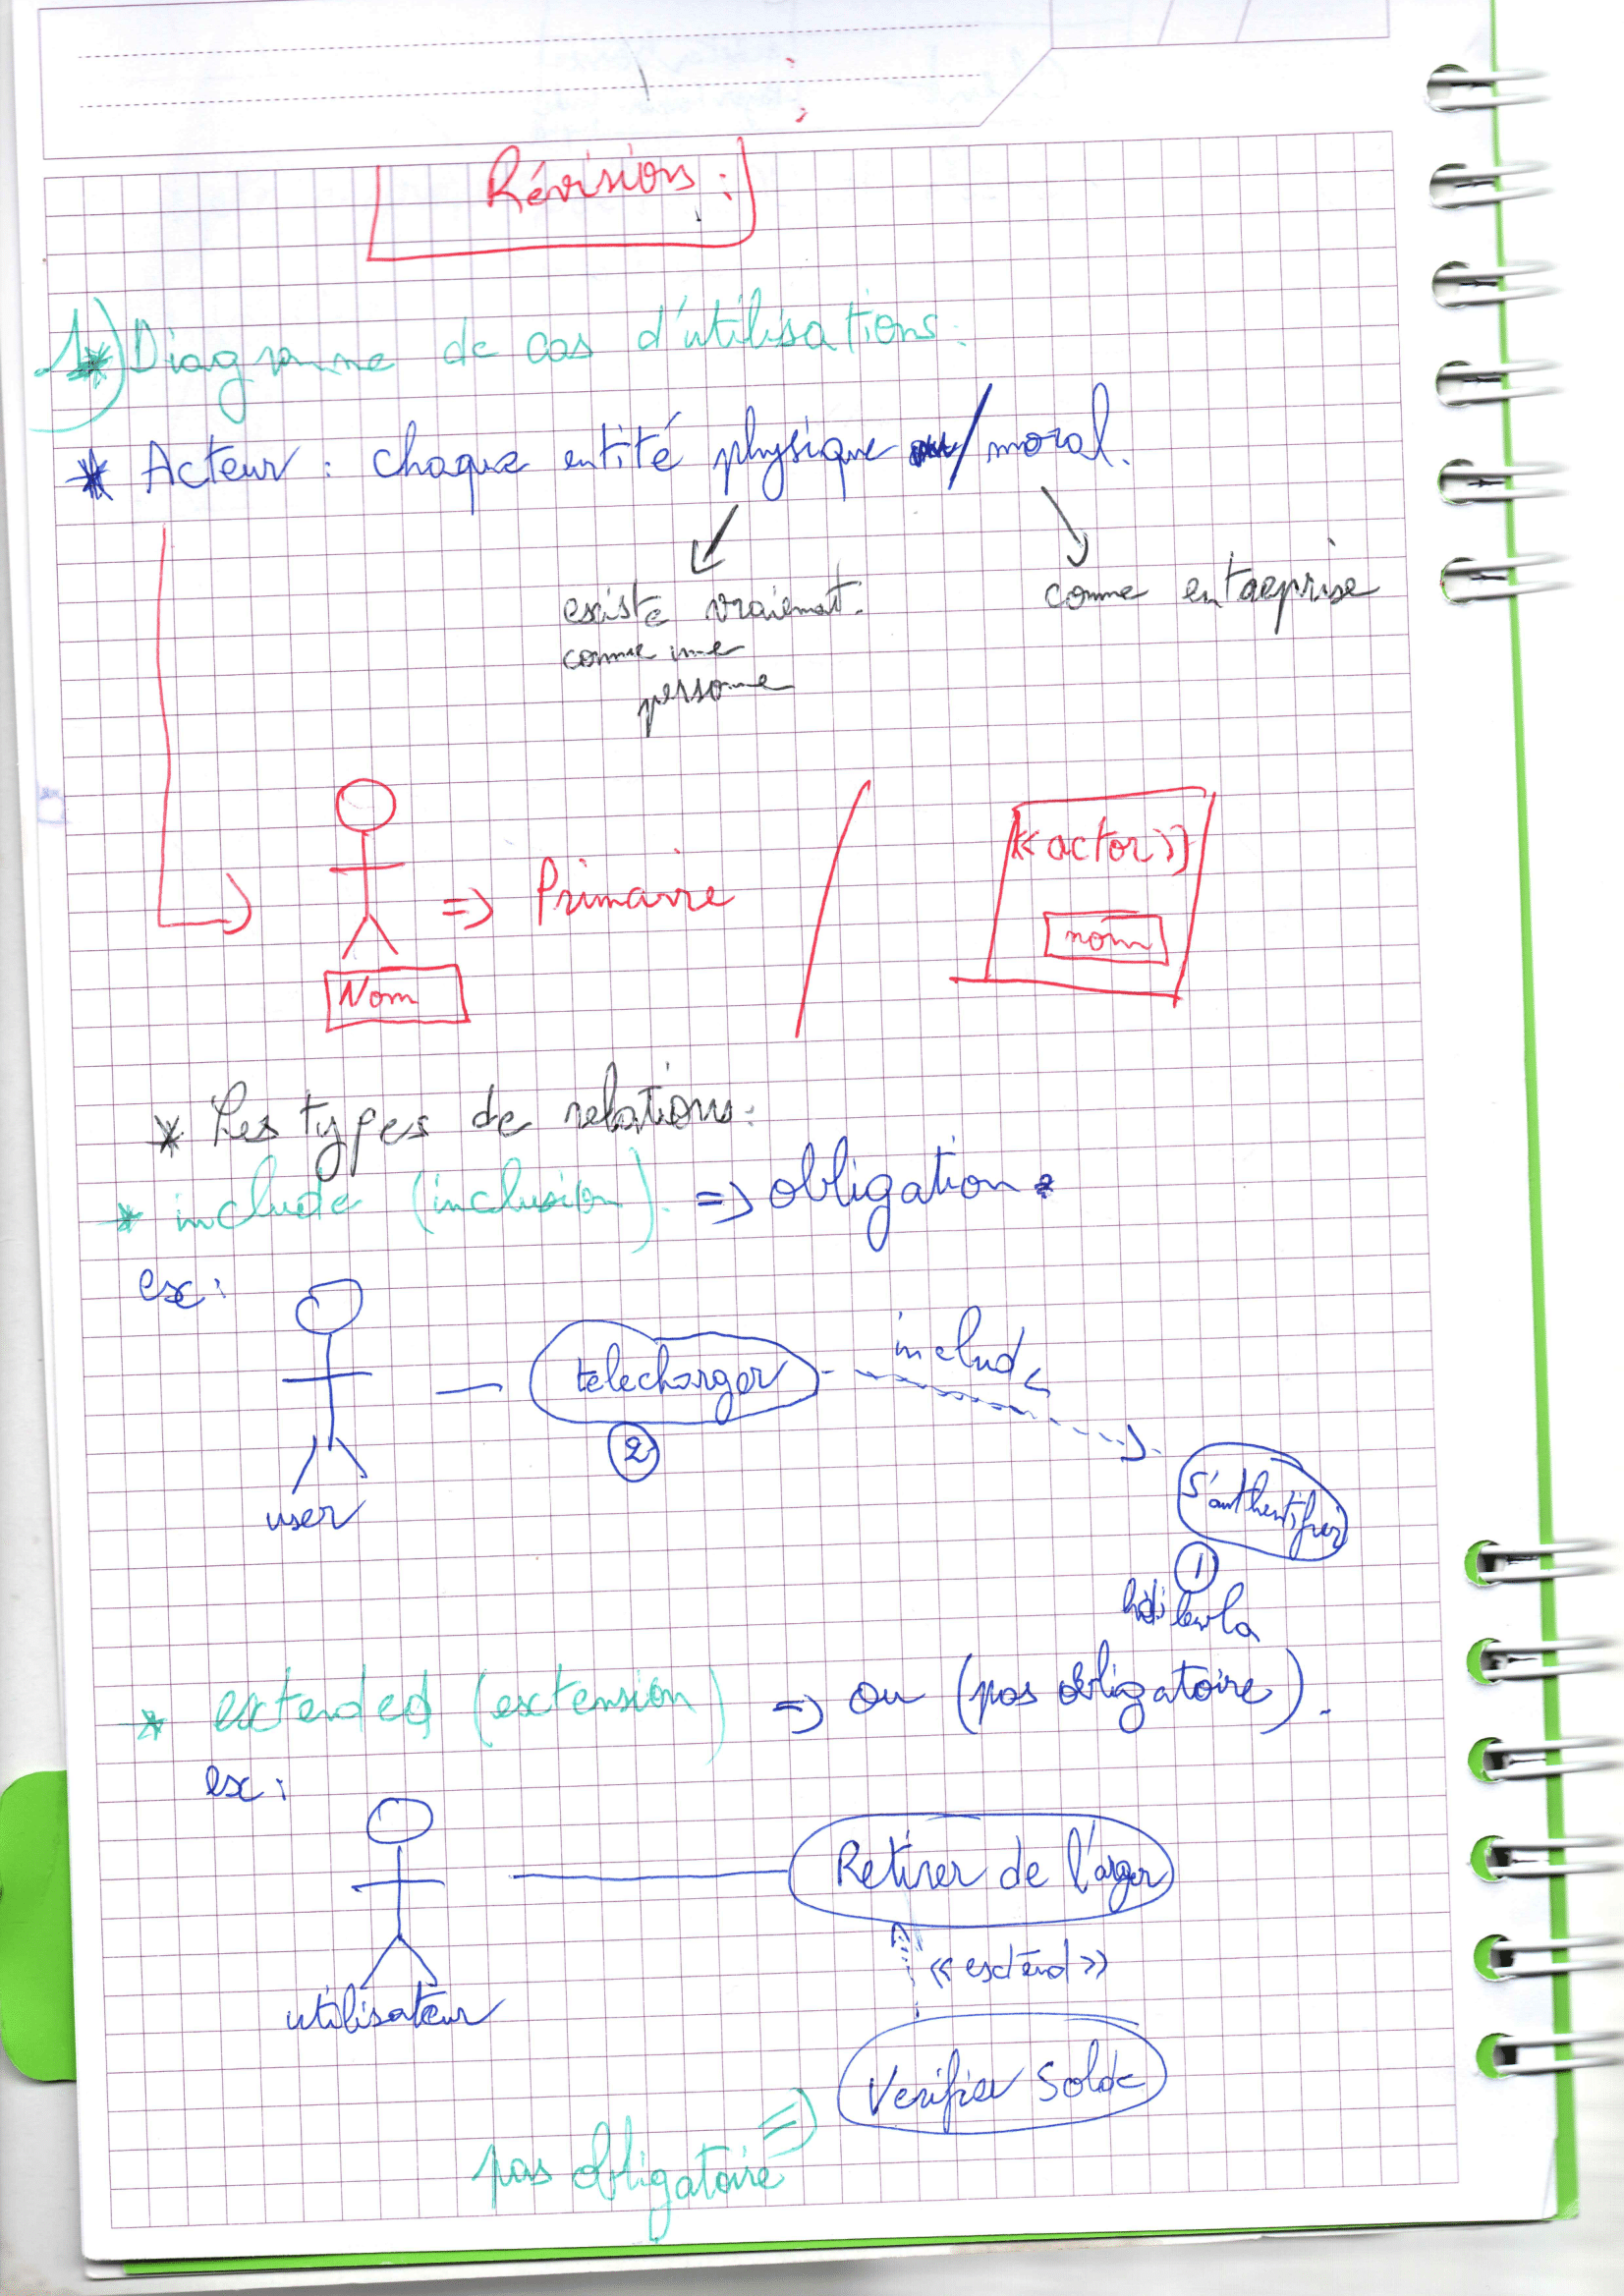 Révision :
1) Diagramme de cas d'utilisations.
* Acteur : chaque entité physique / moral.
existe vraiemnt.
comme une
personne
comme entreprise
=> Primaire
Nom
<<actor>>
nom
* Les types de relations:
* include (inclusion). => obligation
ex:
telecharger
includ
2
user
S'authentifier
1
* extended (extension) => ou (pas obligatoire).
ex:
Retirer de l'arger
<< extend >>
utilisateur
Verifier Solde
pas obligatoire =>